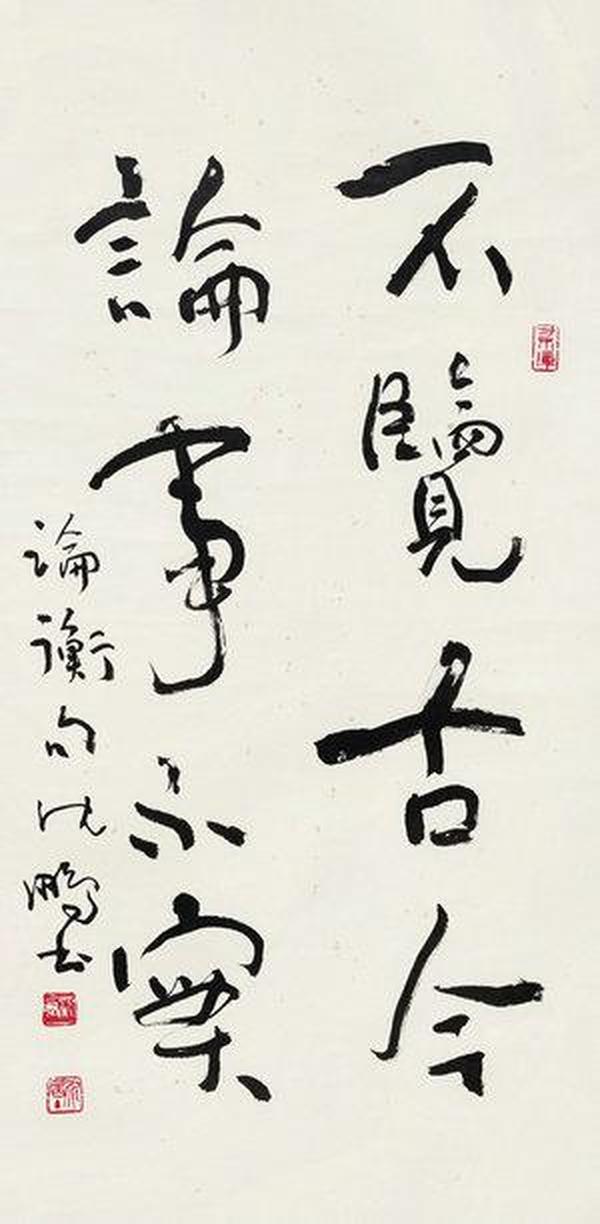 不覽古今
論事不實
論衡句沈鵬書